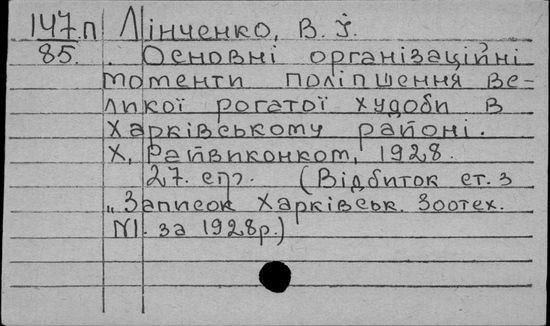 147.п Лінченко, В. Ї.
85. Основні організаційні
моменти поліпшення ве-
ликої рогатої худоби в
Харківському районі.
Х, Райвиконком, 1928.
27. стр. (Відбиток ст. з
„Записок Харківськ. Зоотех.
№1. за 1928р.)